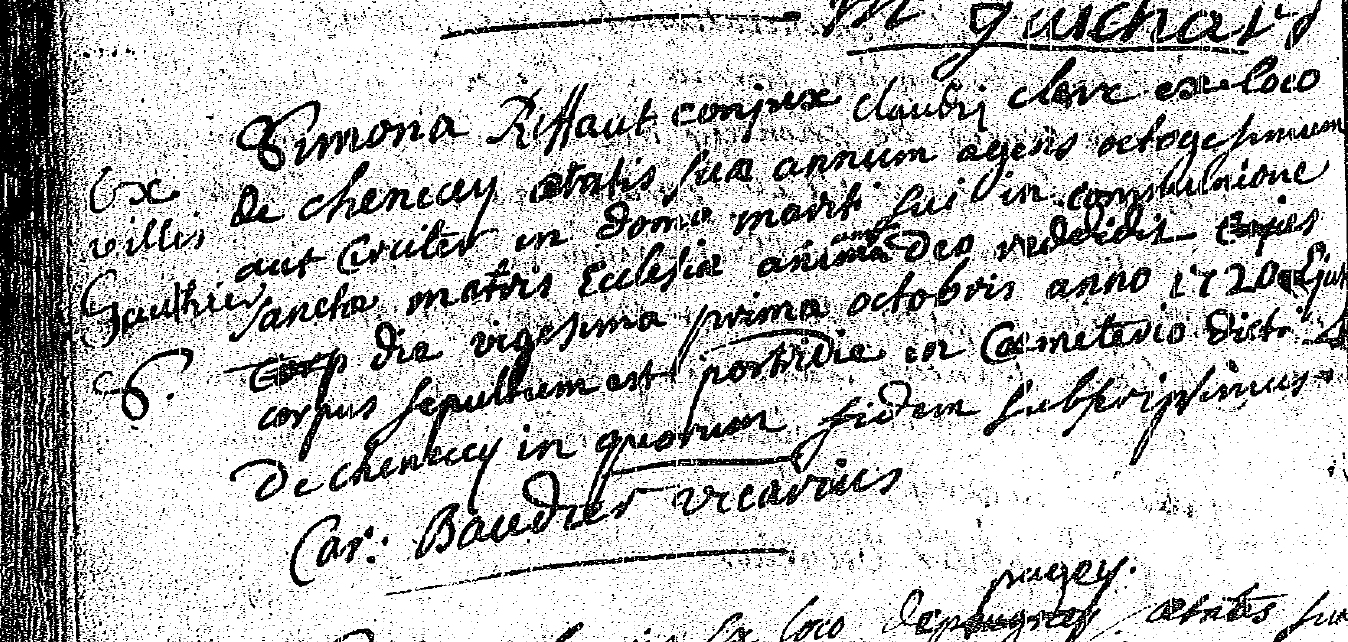 M Guichard
Simona Riffaut conjux claudij clerc ex loco
de chenecey ætatis suæ annum agens octogesimum
aut Circiter in domo mariti sui in communione
sanctæ matris Ecclesiæ animam Deo reddidit
die vigesima prima octobris anno 1720 Ejus
corpus sepultum est postridie in Cœmeterio dicti
De chenecey in quorum fidem subscripsimus
Car: Baudier vicarius
Ex
villis
Gauthier
S.
pugey.
loco de ætatis